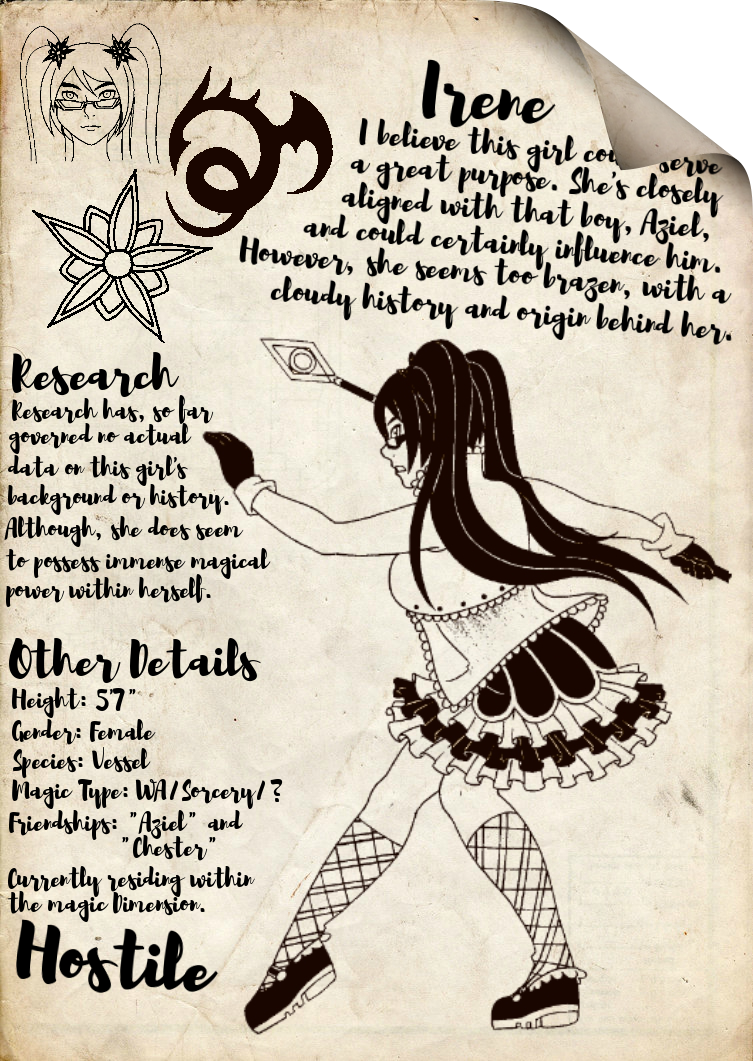 Irene
I believe this girl cou serve
a great purpose. She's closely
aligned with that boy, Aziel,
and could certainly influence him.
However, she seems too brazen, with a
cloudy history and origin behind her.
Research
Research has, so far
governed no actual
data on this girl's
background or history.
Although, she does seem
to possess immense magical
power within herself.
Other Details
Height: 5'7"
Gender: Female
Species: Vessel
Magic Type: WA/Sorcery/?
Friendships: "Aziel" and
"Chester"
Currently residing within
the magic Dimension.
Hostile